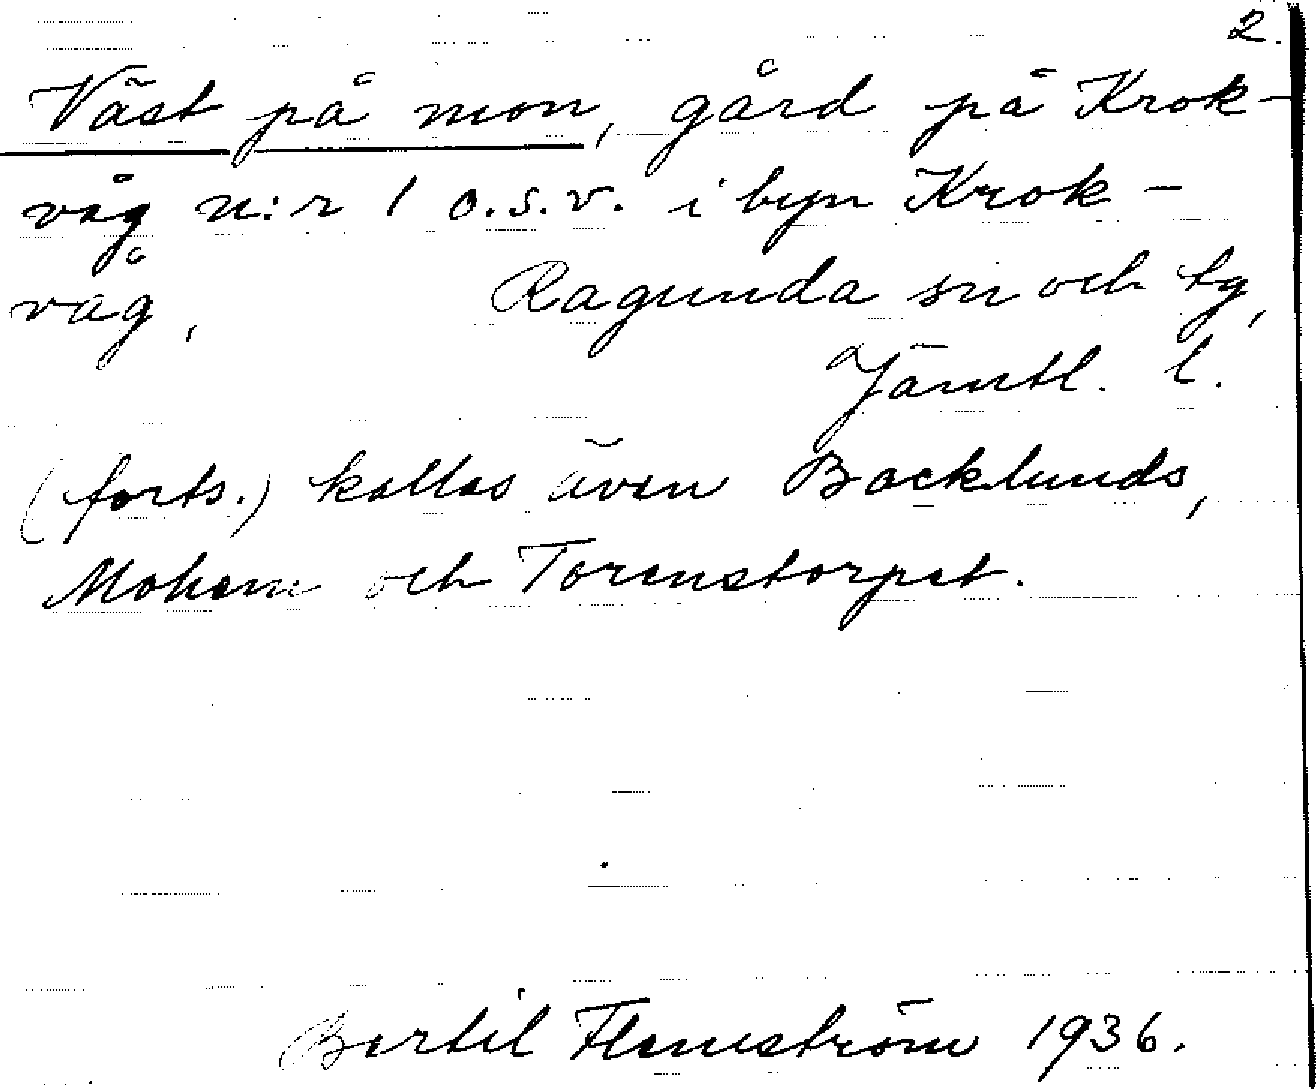 2.
Väst på mon, gård på Krok-
våg n:r 1 o.s.v. i byn Krok-
våg, Ragunda sn och tg,
Jämtl. l.
(forts.) kallas även Backlunds,
Mohem och Torenstorpet.
Bertil Flemström 1936.